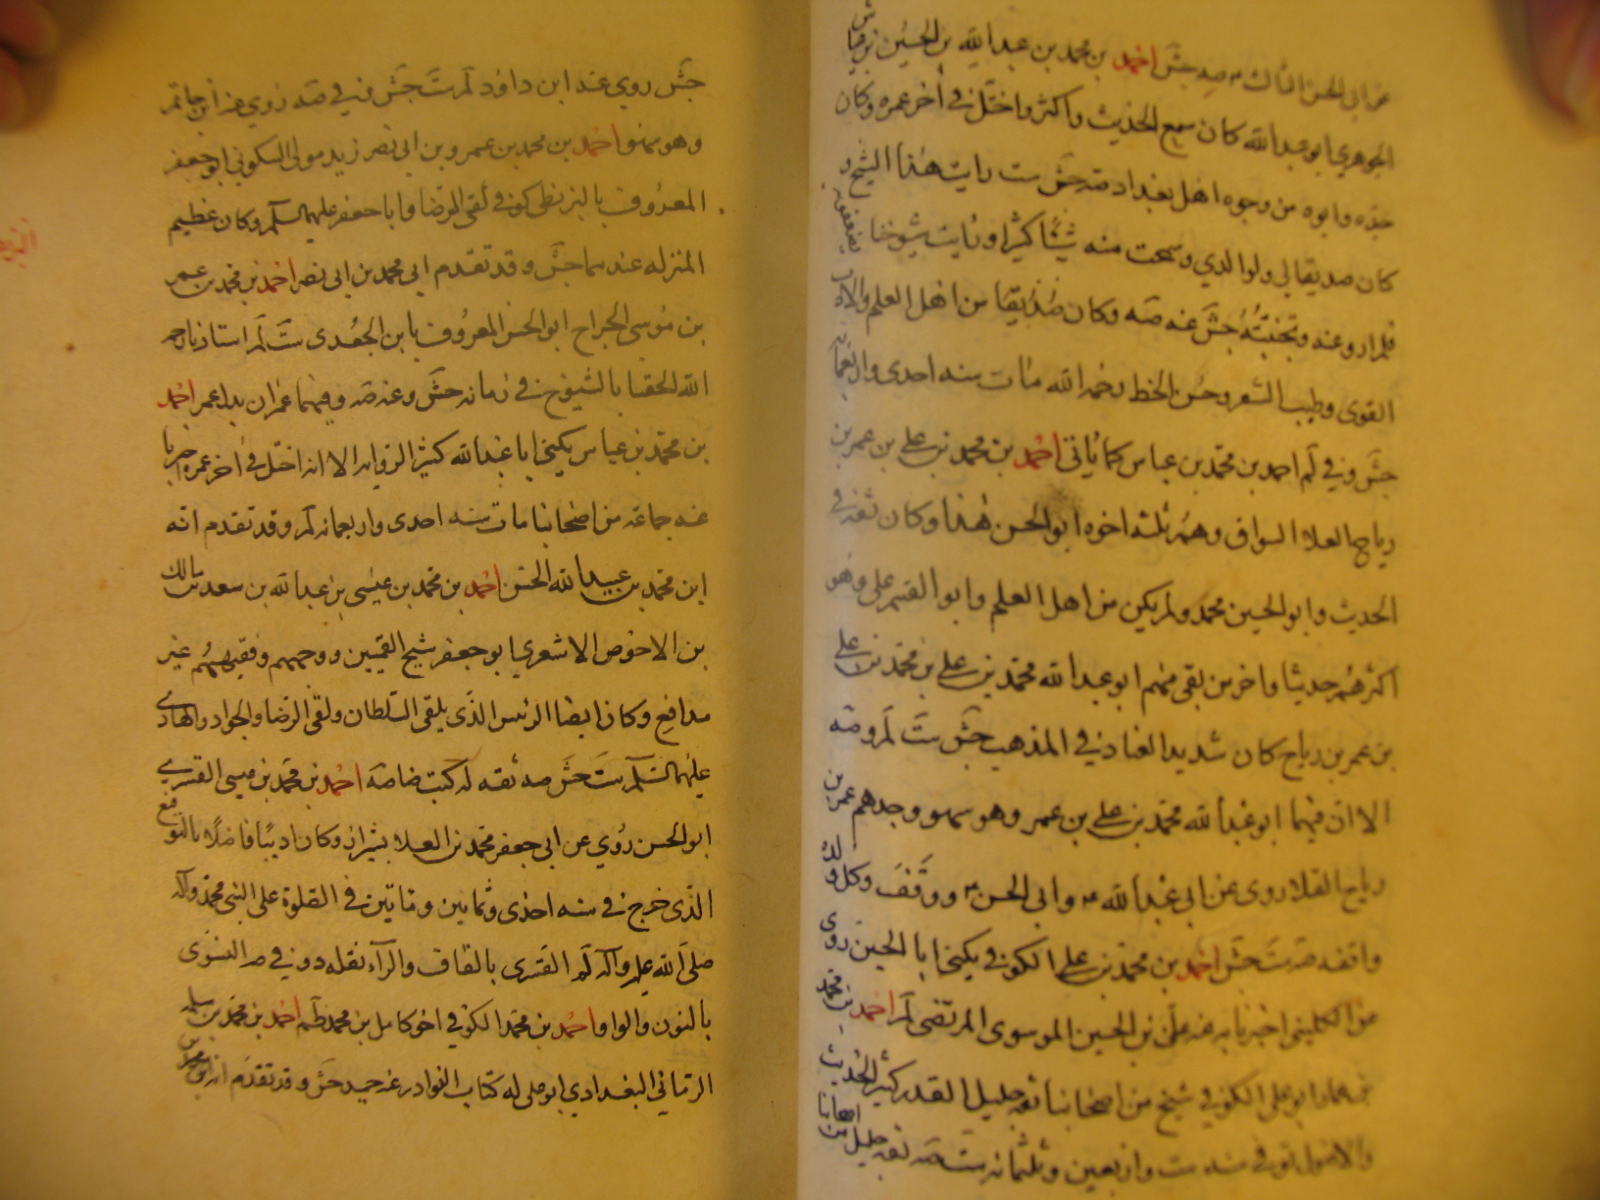 عن ابي الحسن الثالث م صه جش احمد بن محمد بن عبد الله بن الحسين بن عياش
الجوهري ابو عبد الله كان سمع الحديث واكثر واختل في اخر عمره وكان
جده وابوه من وجوه اهل بغداد صه جش ست رايت هذا الشيخ و
كان صديقا لي ولوالدي وسمعت منه شيئا كثيرا ورايت شيوخنا يضعفونه
فلم ارو عنه وتجنبته جش عنه صه وكان صديقا من اهل العلم والادب
القوى وطيب الشعر وحسن الخط رحمه الله مات سنه احدى واربعمائه
جش و في لم احمد بن محمد بن عياش كما ياتي احمد بن محمد بن علي بن عمر بن
رباح العلا السواق وهم ثلثه اخوه ابو الحسن هذا وكان ثقه في
الحديث وابو الحسين محمد ولم يكن من اهل العلم وابو القسم علي وهو
اكثرهم حديثا واخر من بقى منهم ابو عبد الله محمد بن علي بن محمد بن علي
بن عمر بن رباح كان شديد العناد في المذهب جش ست لم و صه
الا ان فيهما ابو عبد الله محمد بن علي بن عمر وهو سهو وجدهم عمر بن
رباح القلا روى عن ابي عبد الله م وابي الحسن م ووقف وكل ولده
واقفه صه ست جش احمد بن محمد بن علي الكوفي يكنى ابا الحسين روى
عن الكليني اخبرنا به عنه علي بن الحسين الموسوى المرتضى لم احمد بن محمد
بن عمار ابو علي الكوفي شيخ من اصحابنا ثقه جليل القدر كثير الحديث
والاصول توفي سنه ست واربعين وثلثمائه ست صه ثقه جليل من اصحابنا
جش روي عنه ابن داود لم ست جش في صه روي عنه ابن حاتم
وهو سهو احمد بن محمد بن عمرو بن ابي نصر زيد مولى السكوني ابو جعفر
المعروف بالبزنطى كوفي لقى الرضا و ابا جعفر عليهما السلم وكان عظيم
المنزله عندهما جش وقد تقدم ابي محمد بن ابي نصر احمد بن محمد بن عمر
بن موسى الجراح ابو الحسن المعروف بابن الجندى ست لم استاذنا رحمه
الله الحقنا بالشيوخ في زمانه جش وعنه صه وفيهما عمران بدل عمر احمد
بن محمد بن عياش يكنى ابا عبد الله كثير الروايه الا انه اختل في اخر عمره اخبرنا
عنه جماعه من اصحابنا مات سنه احدى واربعمائه لم وقد تقدم انه
ابن محمد بن عبيد الله الحسن احمد بن محمد بن عيسى بن عبد الله بن سعد بن مالك
بن الاحوص الاشعري ابو جعفر شيخ القميين ووجههم وفقيههم غير
مدافع وكان ايضا الرئيس الذي يلقى السلطان ولقى الرضا والجواد والهادي
عليهم السلم ست جش صه ثقه له كتب ضا صه احمد بن محمد بن عيسى القسري
ابو الحسن روي عن ابي جعفر محمد بن العلا بشيراز وكان اديبا فاضلا بالتوقيع
الذي خرج في سنه احدى وثمانين وماتين في الصلوة على النبي محمد وآله
صلى الله عليه واله لم القسرى بالقاف والراء نقله د و في صر النسوى
بالنون والواو احمد بن محمد الكوفي اخو كامل بن محمد ظم احمد بن محمد بن مسلمه
الرماني البغدادي ابو علي له كتاب النوادر عنه حميد جش وقد تقدم انه ابن